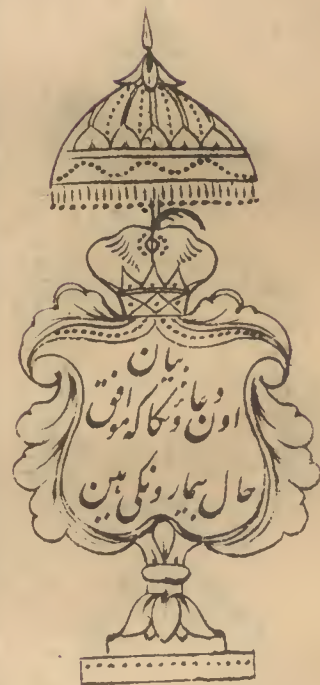 بیان
اون دعاؤنکا کہ موافق
حال بیمارونکی ہین